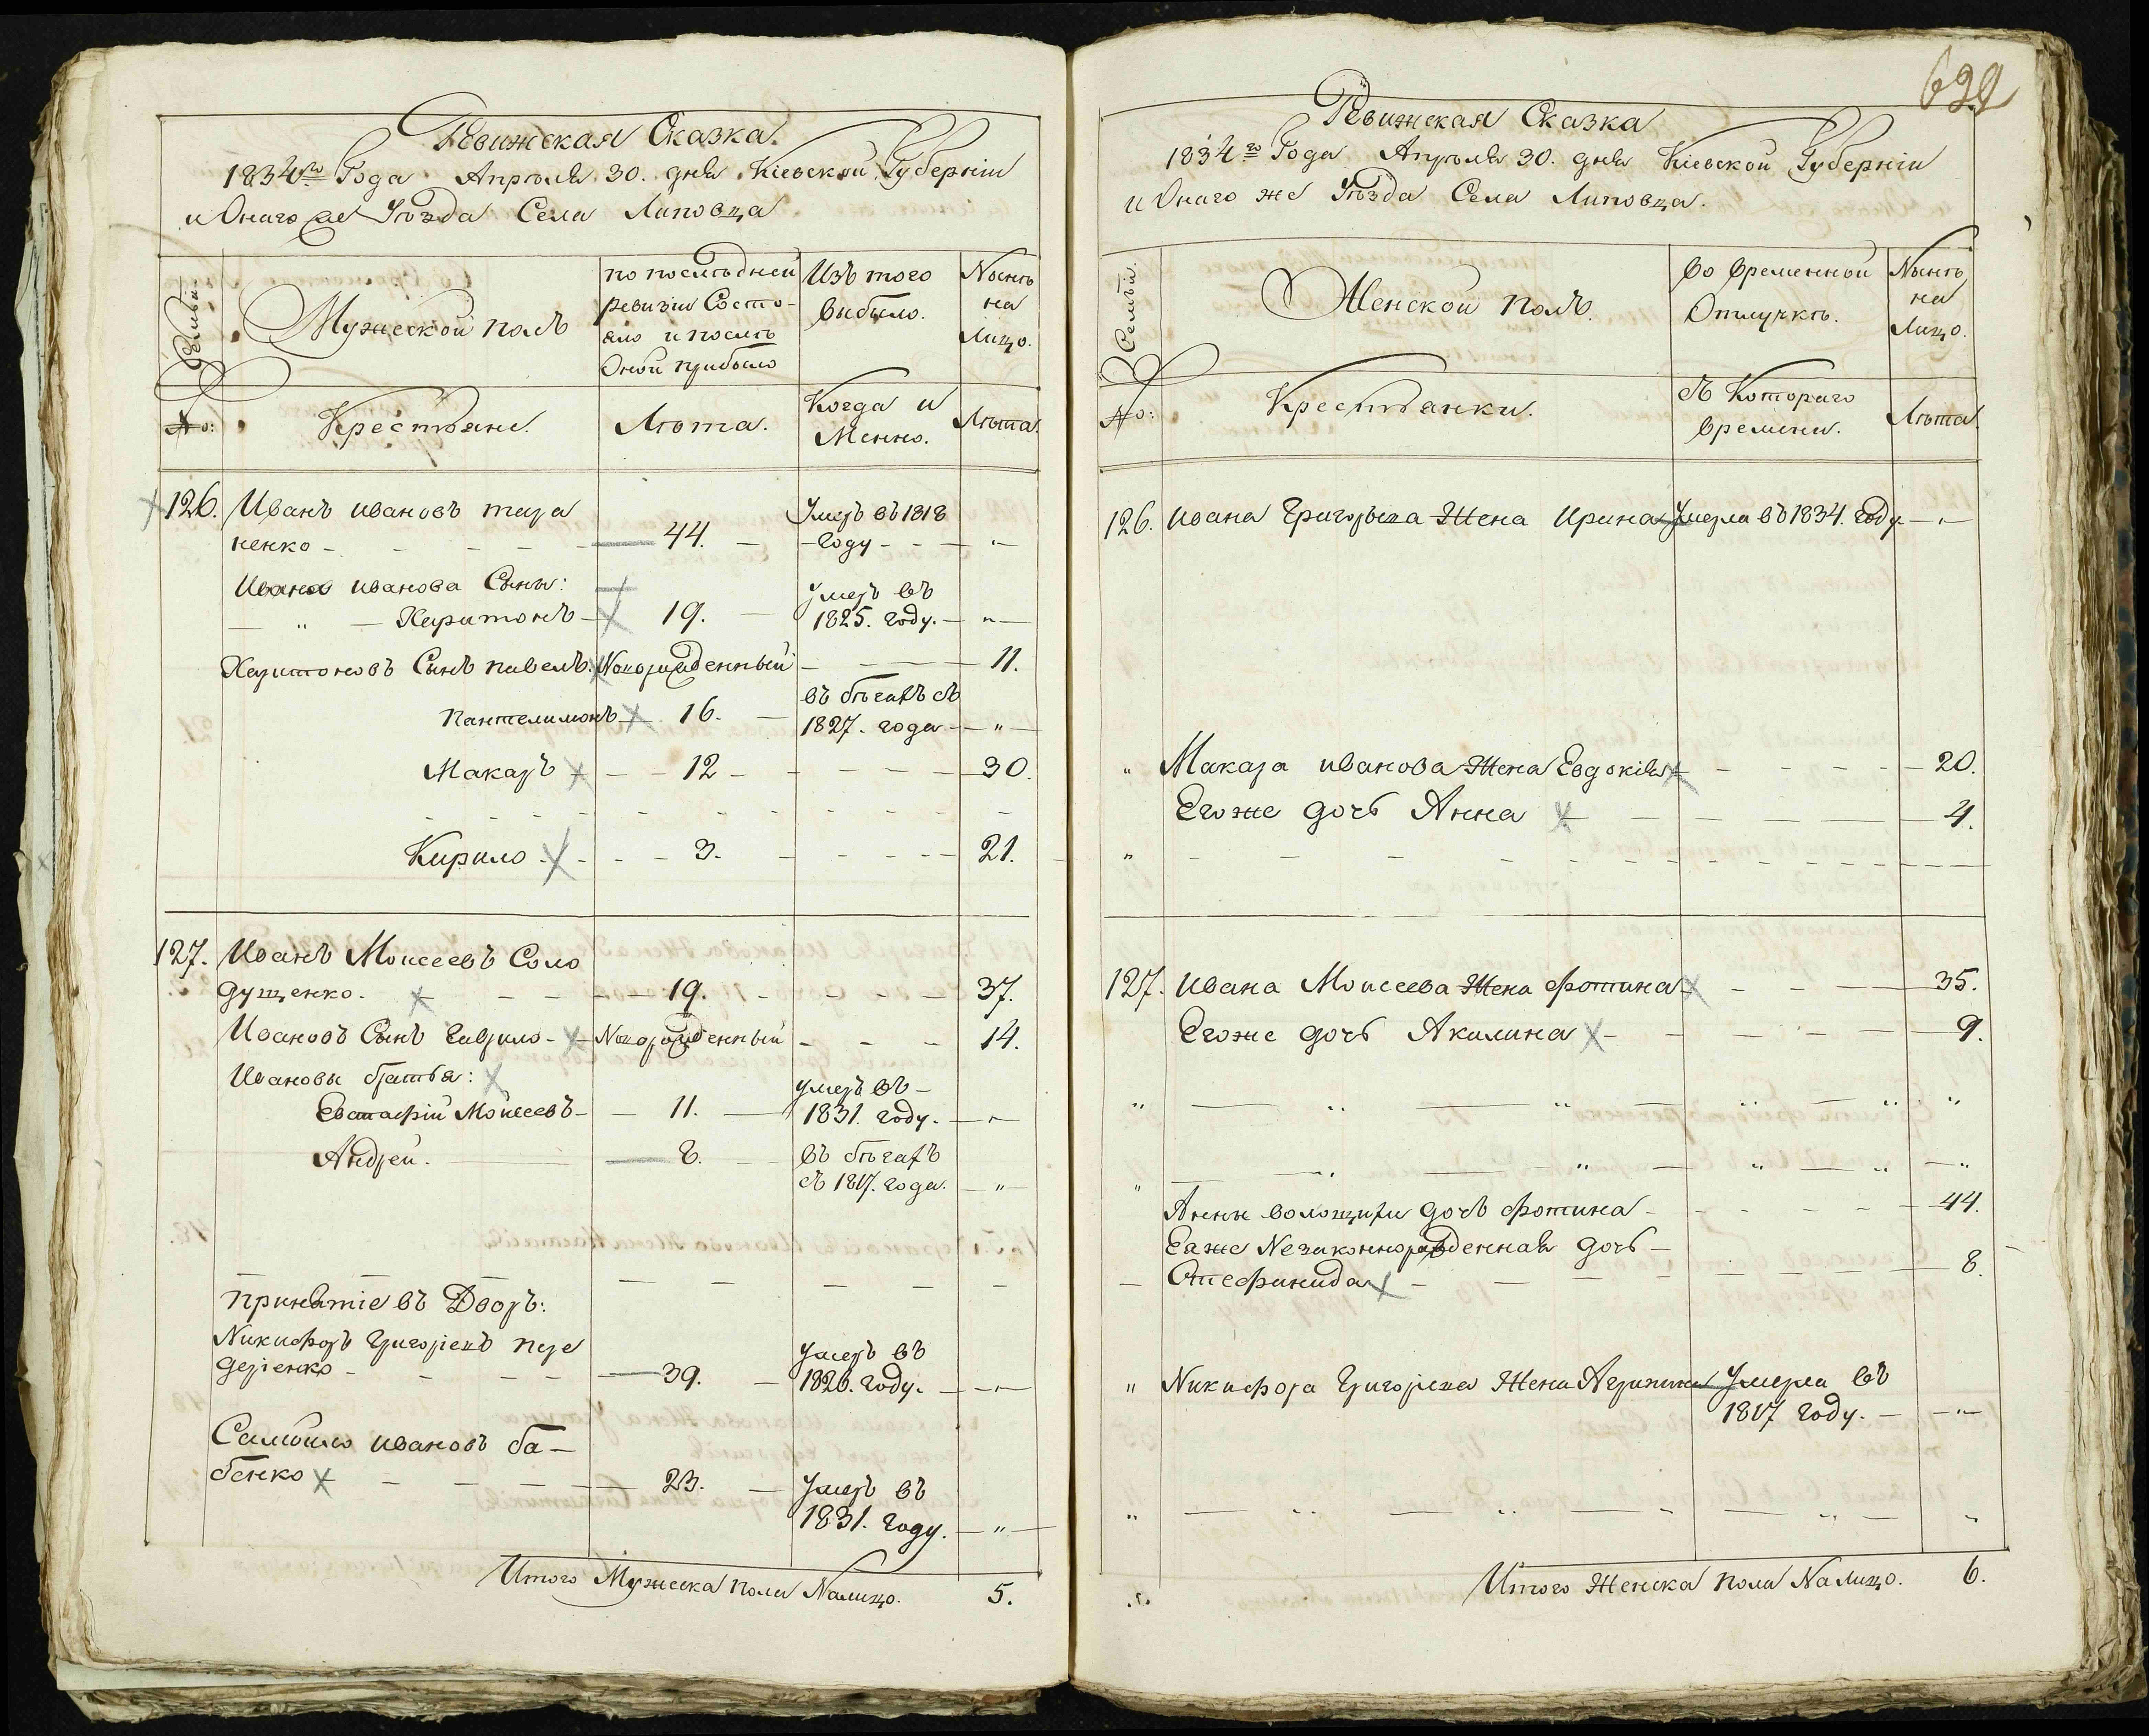 Ревижская Сказка.
1834го Года Апреля 30. дня Кіевской Губерніи
и Онаго же Уѣзда Села Липовца
Семьи.
Мужеской полъ
по послѣдней
ревизіи Состо-
яло и послѣ
Оной прибыло
Изъ того
выбыло.
Нынѣ
на
Лицо.
No:
Крестьяне.
Лѣта.
Когда и
Менно.
Лѣта.
126. Иванъ ивановъ тара
ненко - 44. - Умеръ въ 1818
Году - "
Ивана иванова Сыны:
" Харитонъ - 19. - умеръ въ
1825. году. - "
Харитоновъ Сынъ павелъ. Новорожденный - 11.
Пантелимонъ 16. - въ бѣгахъ съ
1827. года - "
Макаръ - 12 - 30.
Кирило - 3. - 21.
127. Иванъ Моисеевъ Соло
дущенко. - 19. - 37.
Ивановъ Сынъ Гаврило - Новорожденный - 14.
Ивановы братья:
Евстафій Моисеевъ - 11. - умеръ въ -
1831. году. - "
Андрей. - 8. - въ бѣгахъ
съ 1817. года. - "
принятіе въ Дворъ:
Никифоръ Григорьевъ пере
деріенко - 39. - умеръ въ
1826. году. - "
Самойло ивановъ ба-
бенко - 23. - Умеръ въ
1831. году. - "
Итого Мужеска пола Налицо. 5.
639
Ревижская Сказка
1834го Года Апреля 30. дня Кіевской Губерніи
и Онаго же Уѣзда Села Липовца.
Семьи.
Женской полъ.
во временной
Отлучкѣ.
Нынѣ
на
Лицо.
No:
Крестьянки.
съ Котораго
времени.
Лѣта.
126. ивана Григорьева Жена Ирина Умерла въ 1834. году - "
" Макара иванова Жена Евдокія - 20.
Егоже дочь Анна - 4.
"
127. ивана Моисеева Жена фотина - 35.
Егоже дочь Акилина - 9.
Анны волощихи дочь фотина - 44.
Еяже Незаконнорожденная дочь -
Стефинида - 8.
" Никифора Григорьева Жена Агрипина Умерла въ
1817 году. - "
Итого Женска пола Налицо. 6.